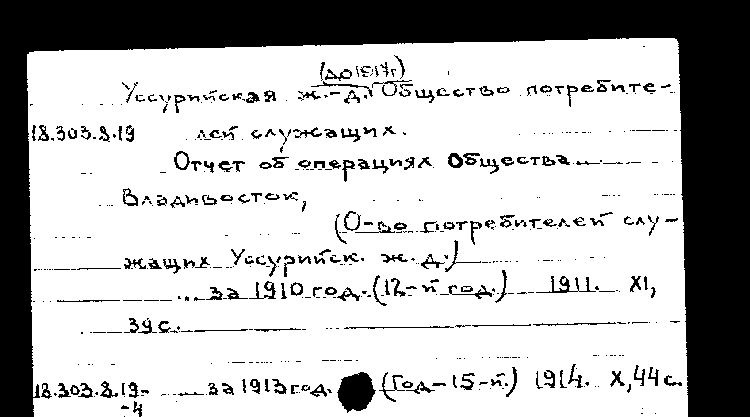 (до 1917г)
Уссурийская ж.-д. Общество потребите-
18.303.8.19 лей служащих.
Отчет об операциях Общества...
Владивосток,
(О-во потребителей слу-
жащих Уссурийск. ж. д.)
... за 1910 год. (12-й год.) 1911. XI,
39 с.
18.303.8.19- ... за 1913 год. (Год-15-й.) 1914. X, 44 с.
-4